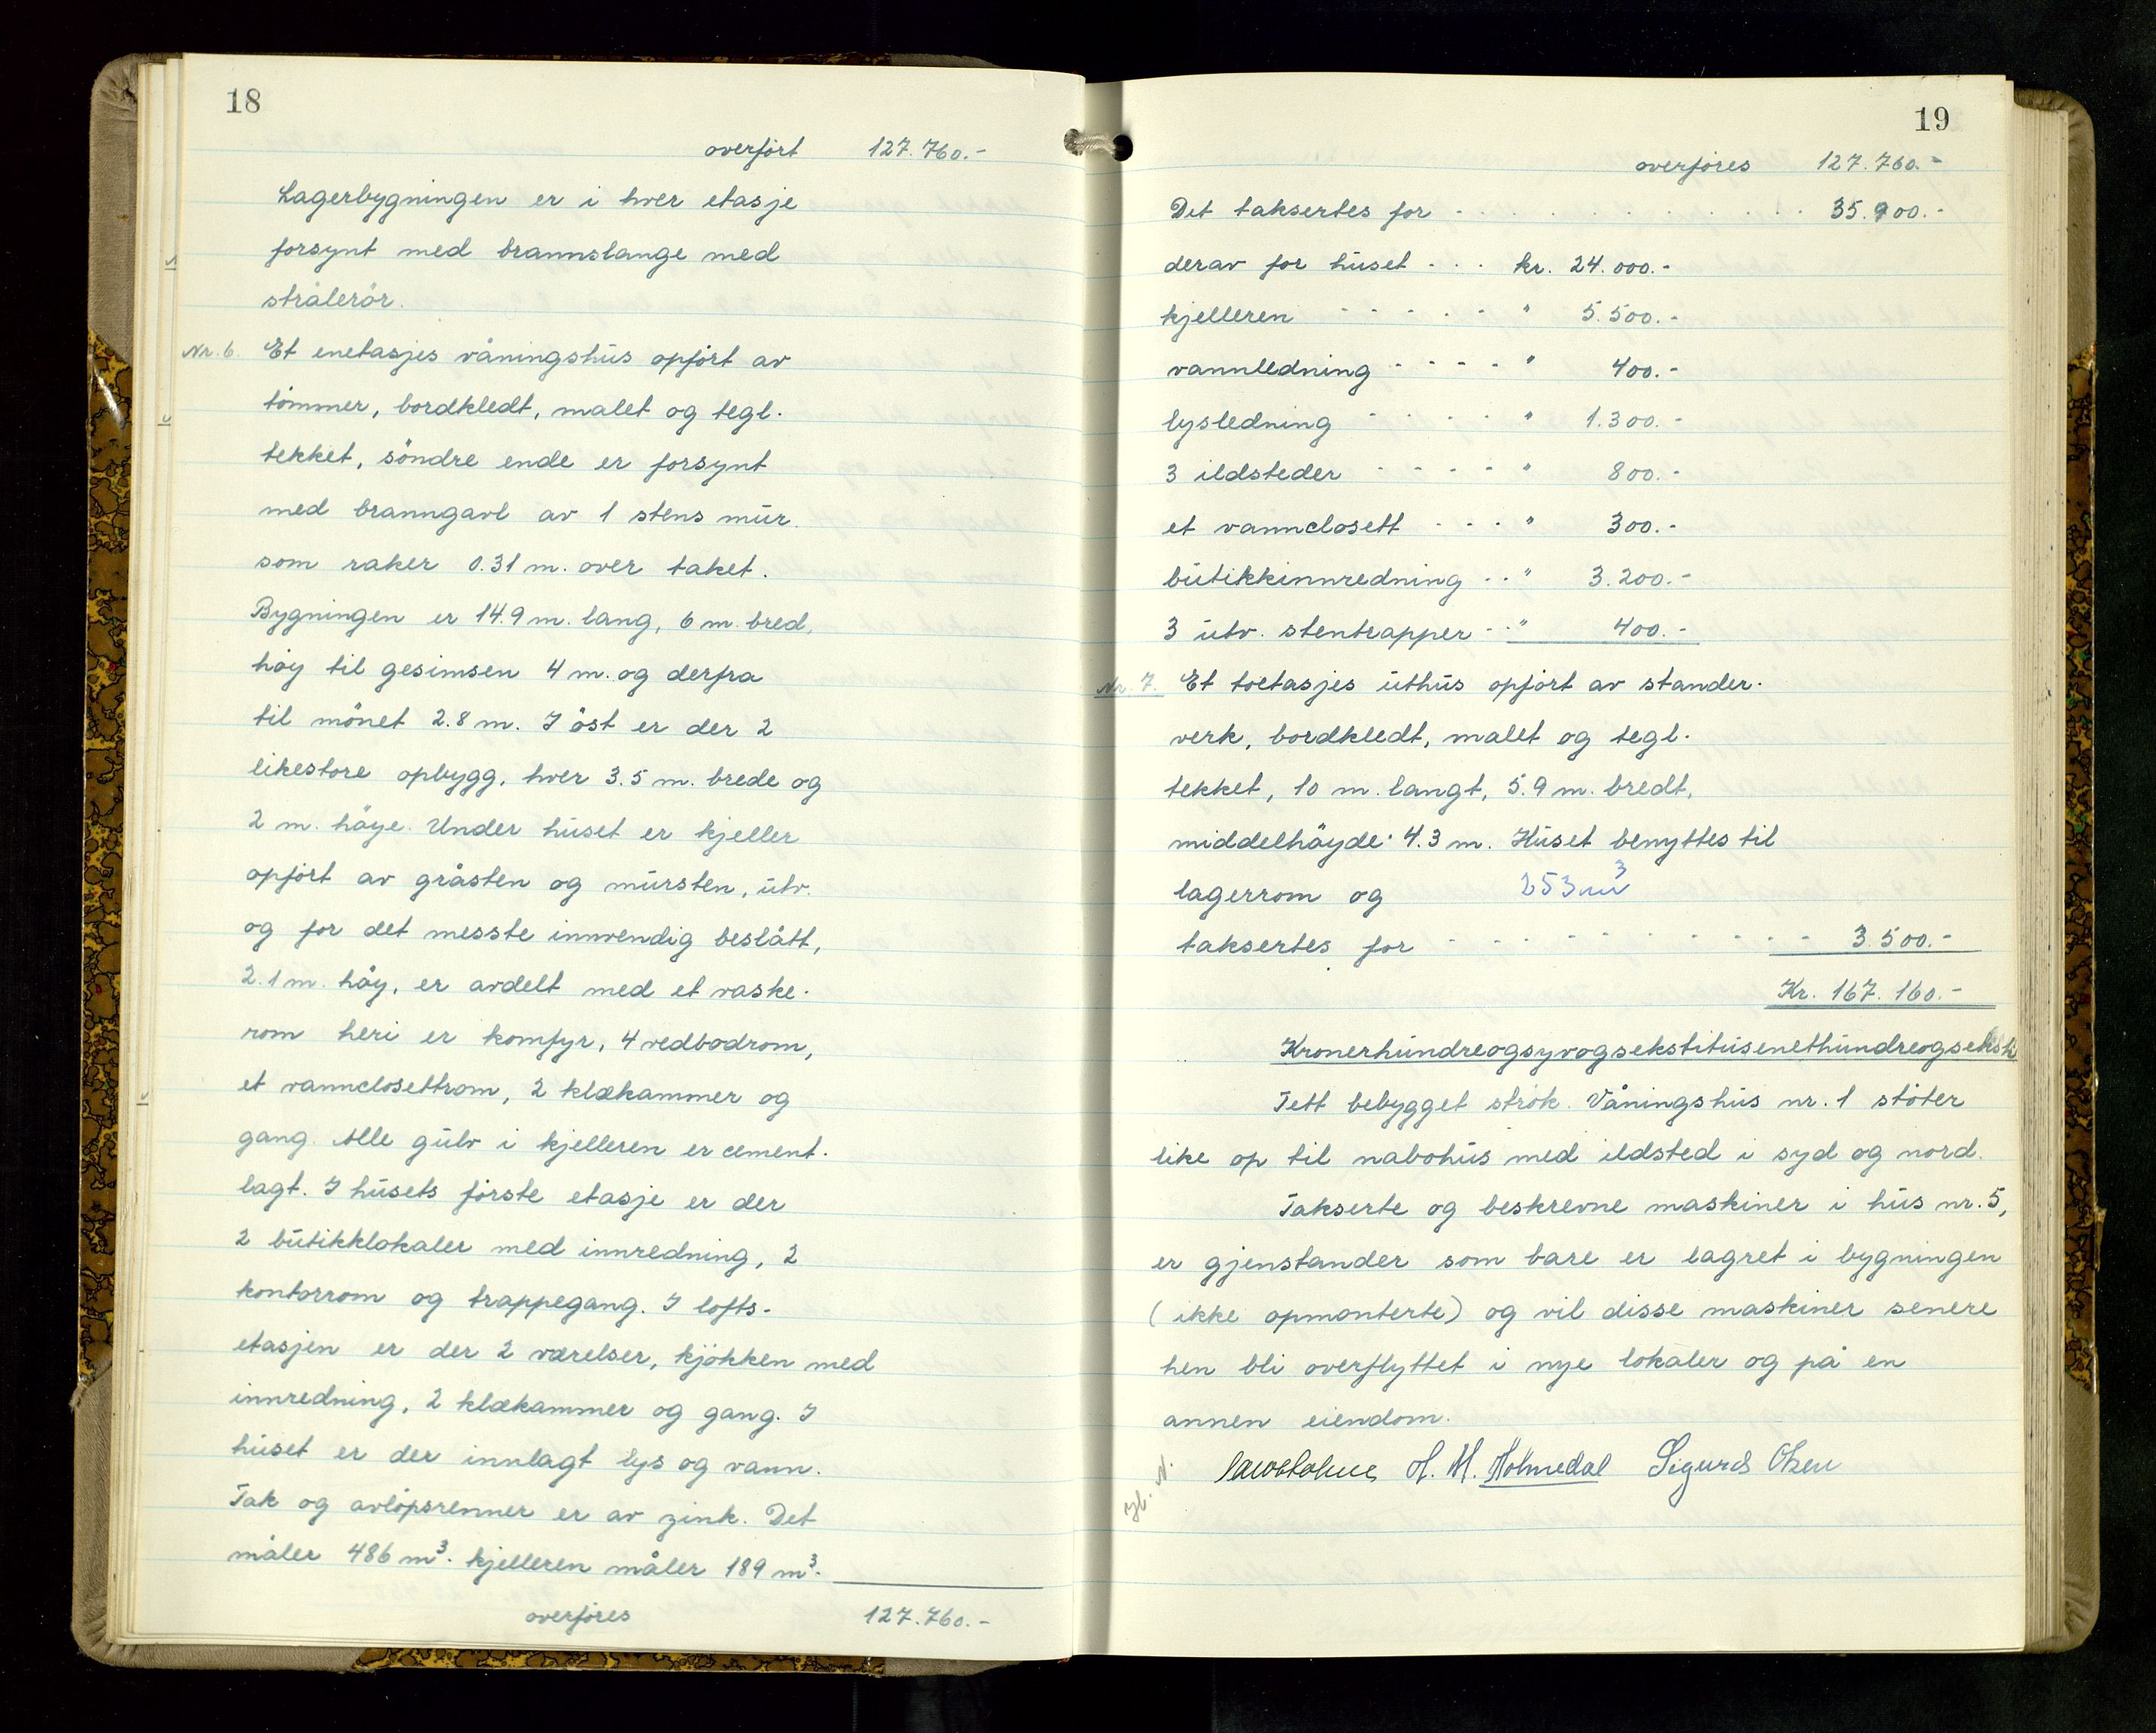 18
overført 127.760.-
Lagerbygningen er i hver etasje
forsynt med brannslange med
strålerör.
Nr. 6. Et enetasjes våningshus opført av
tömmer, bordkledt, malet og tegl-
tekket, söndre ende er forsynt
med branngavl av 1 stens mur
som raker 0.31 m. over taket.
Bygningen er 14.9 m. lang, 6 m. bred,
höy til gesimsen 4 m. og derfra
til mönet 2.8 m. I öst er der 2
likestore opbygg, hver 3.5 m. brede og
2 m. höye. Under huset er kjeller
opført av gråsten og mursten, utv.
og for det messte innvendig beslått,
2.1 m. höy, er avdelt med et vaske-
rom heri er komfyr, 4 vedbodrom,
et vannclosettrom, 2 klækammer og
gang. Alle gulv i kjelleren er cement-
lagt. I husets förste etasje er der
2 butikklokaler med innredning, 2
kontorrom og trappegang. I lofts-
etasjen er der 2 værelser, kjökken med
innredning, 2 klækammer og gang. I
huset er der innlagt lys og vann.
Tak og avlöpsrenner er av zink. Det
måler 486 m³. kjelleren måler 189 m³.
overføres 127.760.-
19
overføres 127.760.-
Det taksertes for - - - - - 35.900.-
derav for huset - - - kr. 24.000.-
kjelleren - - - - - " 5.500.-
vannledning - - - - " 400.-
lysledning - - - - - " 1.300.-
3 ildsteder - - - - - " 800.-
et vannclosett - - - " 300.-
butikkinnredning - - " 3.200.-
3 utv. stentrapper - - " 400.-
Nr. 7. Et toetasjes uthus opført av stander-
verk, bordkledt, malet og tegl-
tekket, 10 m. langt, 5.9 m. bredt,
middelhöyde 4.3 m. Huset benyttes til
lagerrom og 253 m³
taksertes for - - - - - 3.500.-
Kr. 167.160.-
Kronerhundreogsyvogsekstitusenethundreogseksti
Tett bebygget strök. Våningshus nr. 1 stöter
like op til nabohus med ildsted i syd og nord.
Takserte og beskrevne maskiner i hus nr. 5,
er gjenstander som bare er lagret i bygningen
(ikke opmonterte) og vil disse maskiner senere
hen bli overflyttet i nye lokaler og på en
annen eiendom.
H. M. Holmedal Sigurd Olsen